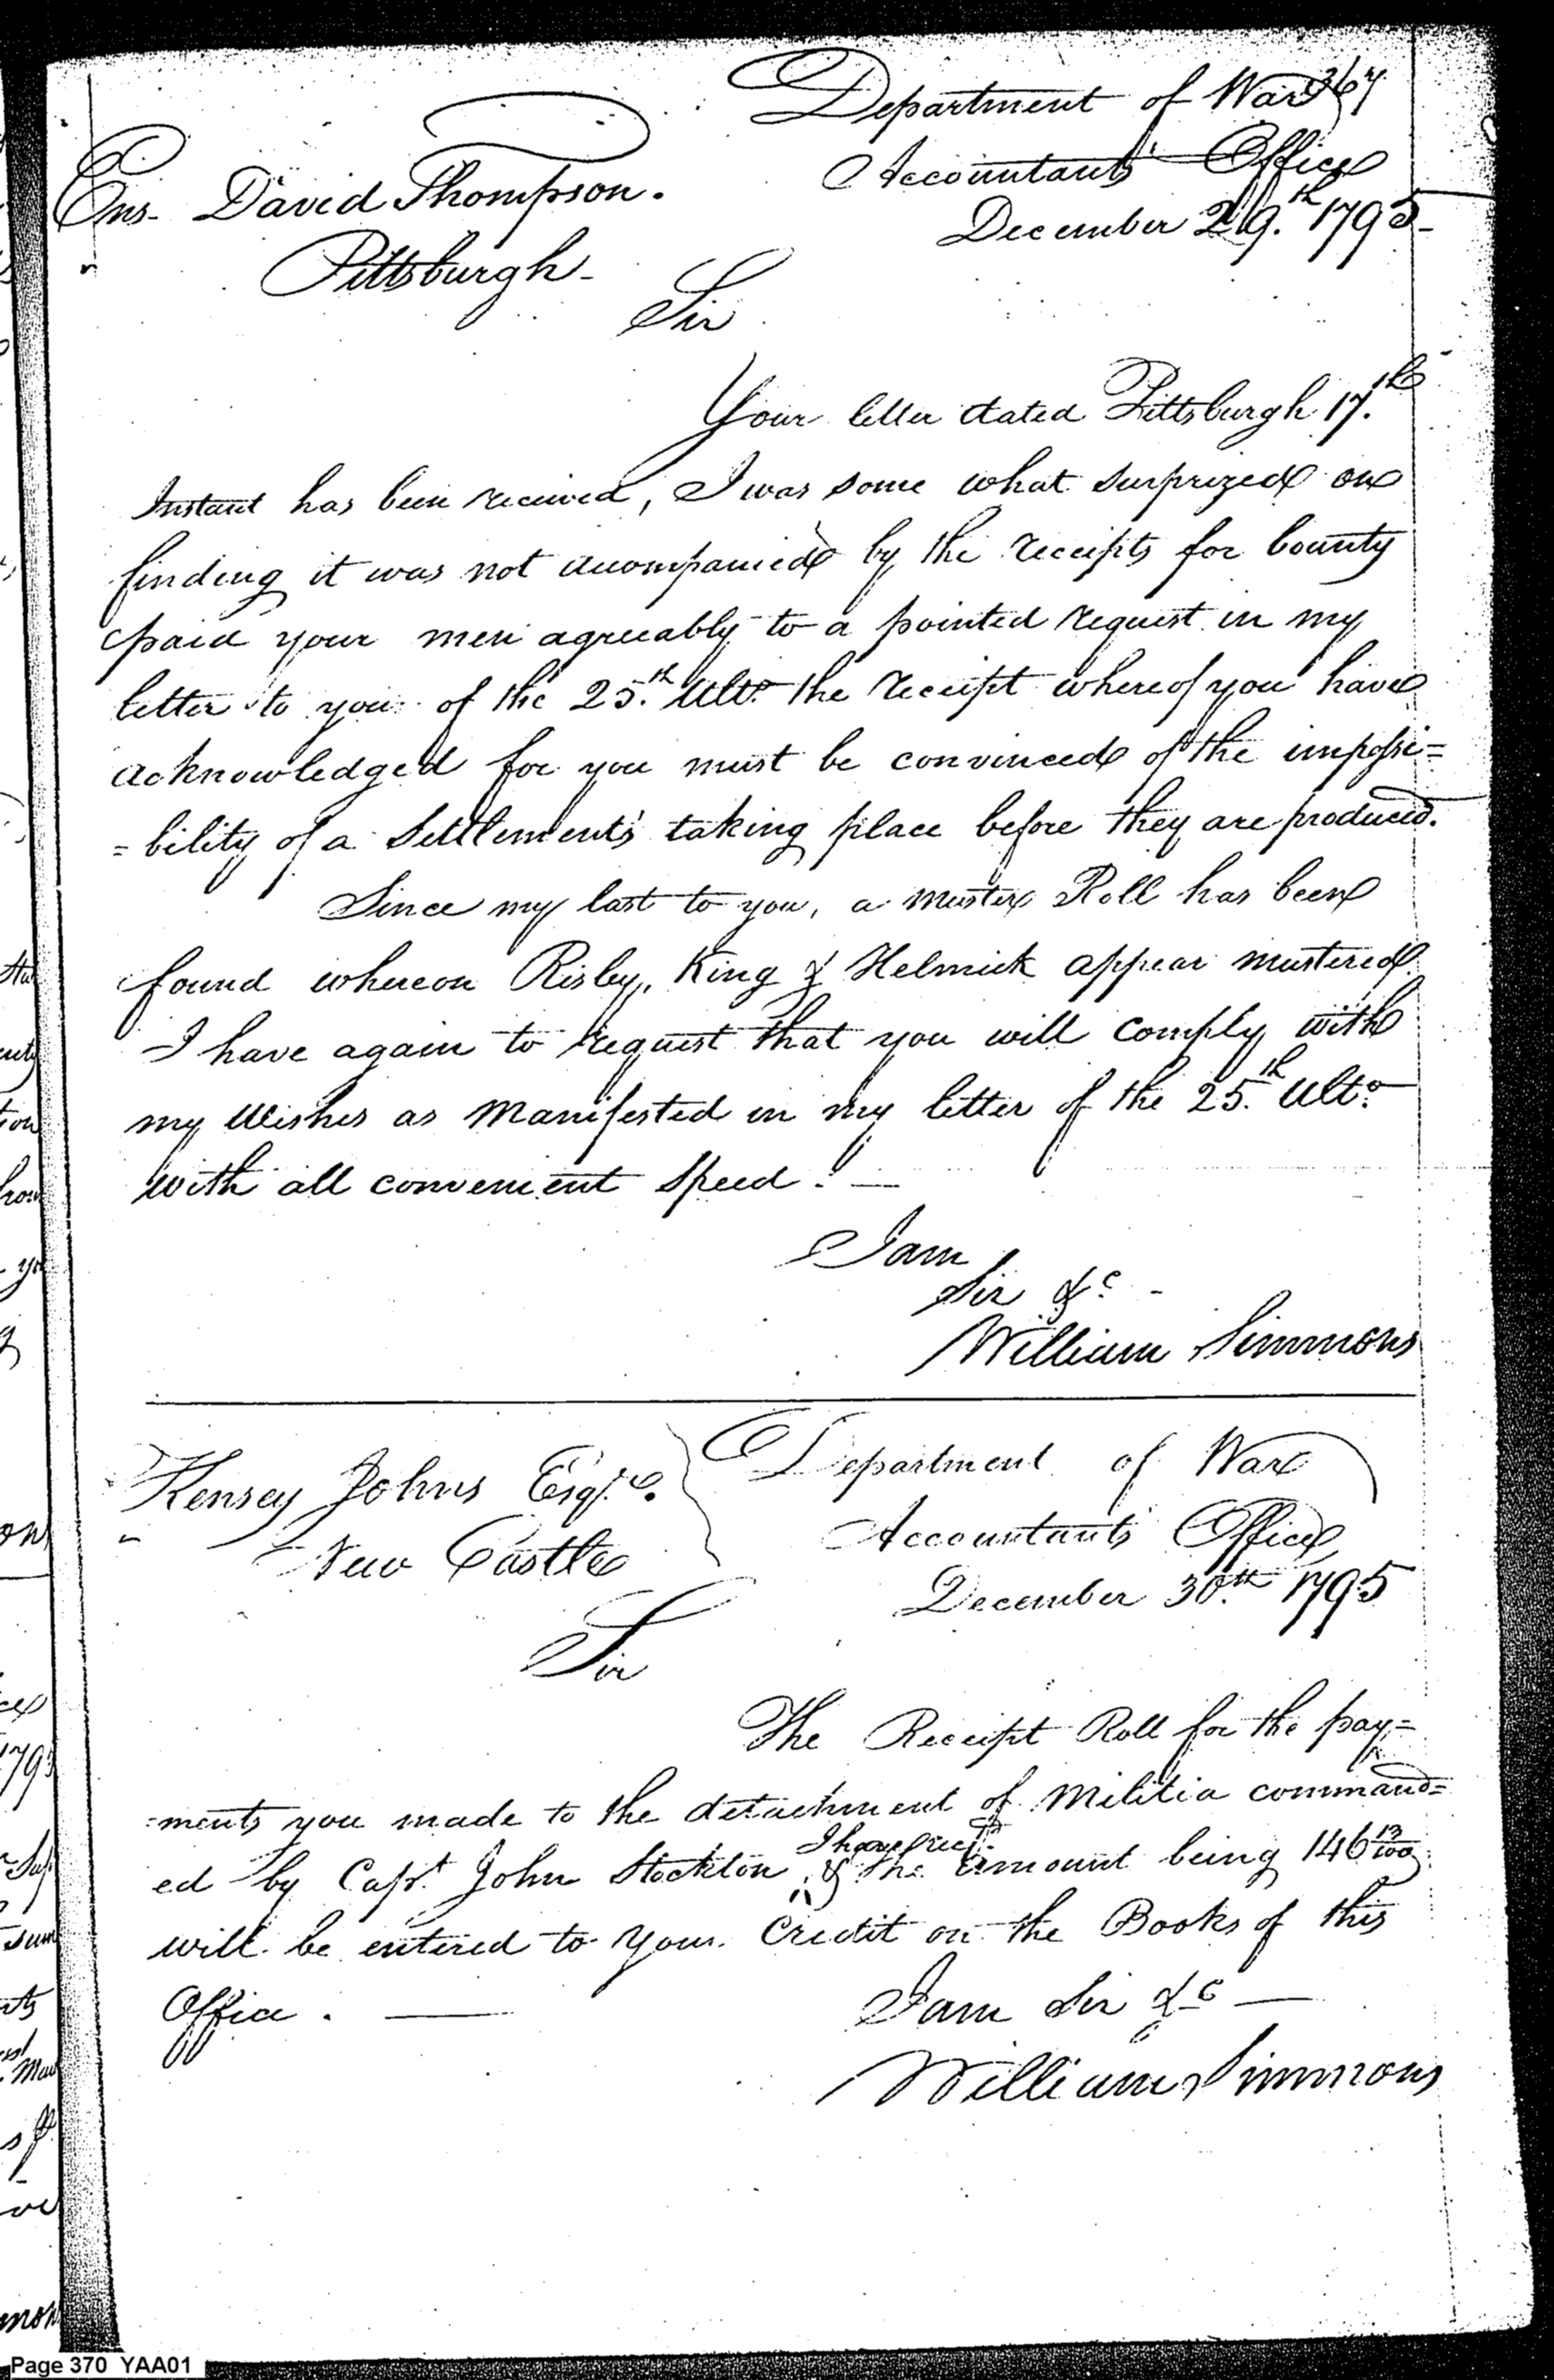 367
Department of War
Accountants' Office
December 29.th 1795-
Ens. David Thompson.
Pittsburgh-
Sir
Your letter dated Pittsburgh 17.th
Instant has been received, I was some what surprized on
finding it was not accompanied by the receipts for bounty
paid your men agreeably to a pointed request in my
letter to you of the 25.th Ulto. the receipt whereof you have
acknowledged for you must be convinced of the impossi=
=bility of a Settlement's taking place before they are produced.
Since my last to you, a muster Roll has been
found whereon Risley, King & Helmick appear mustered
I have again to request that you will comply with
my Wishes as Manifested in my letter of the 25.th Ulto.
with all convenient Speed. —
I am
Sir &c. -
William Simmons
Kensey Johns Esqre.
New Castle
Department of War
Accountants' Office
December 30.th 1795
Sir
The Receipt Roll for the pay=
=ments you made to the detachment of Militia command=
I have recd.
ed by Capt. John Stockton & the amount being 146 13/100
will be entered to your Credit on the Books of this
Office. —
I am Sir &c —
William Simmons
Page 370 YAA01